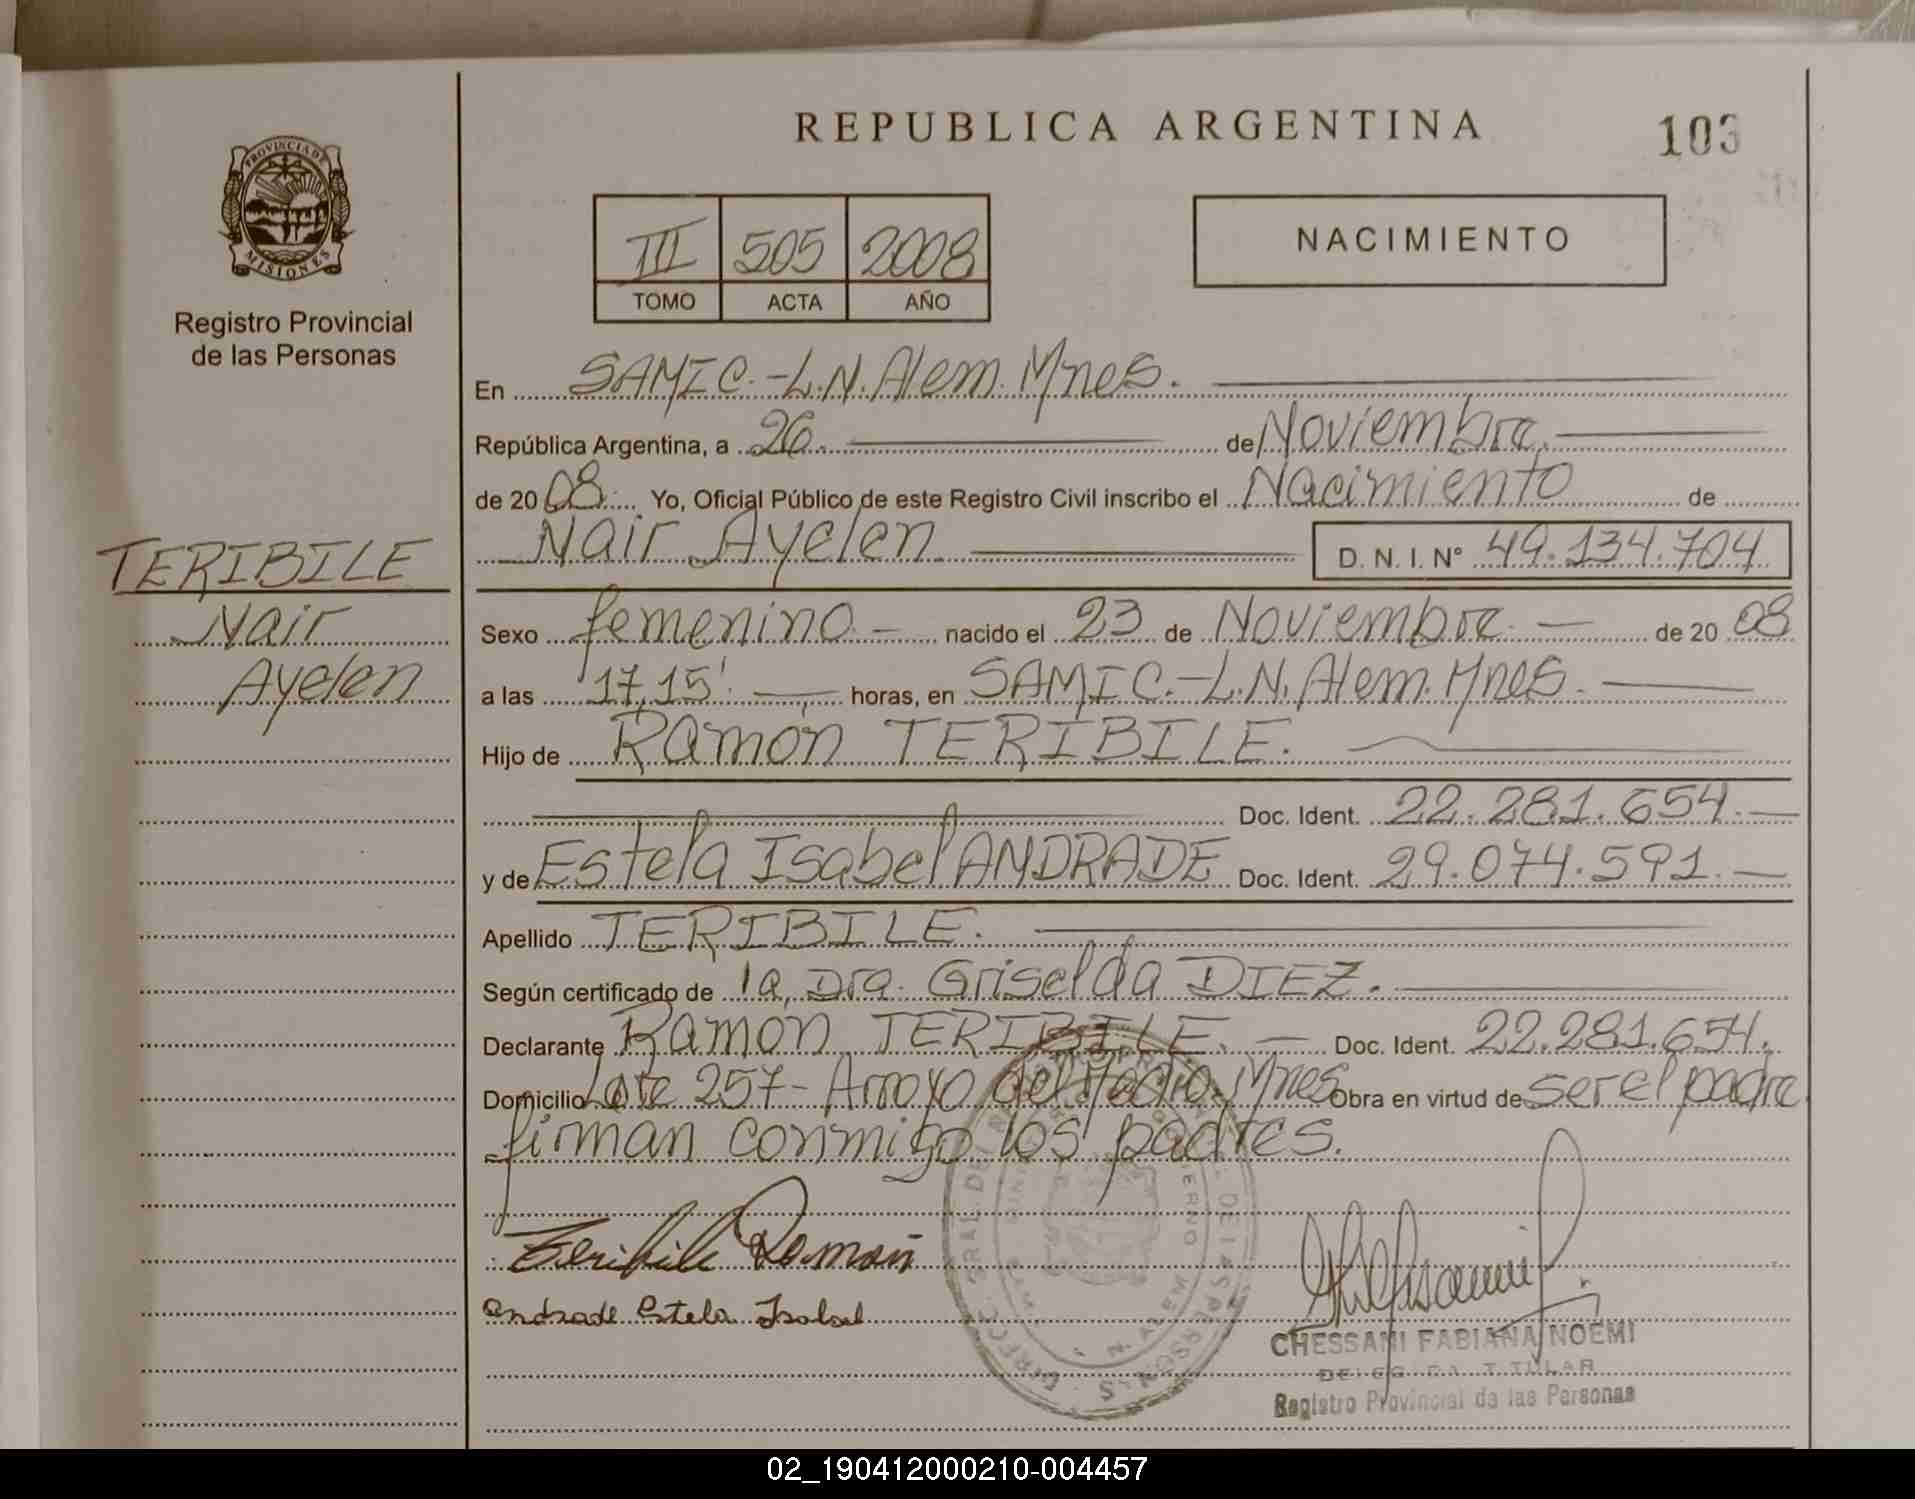 REPUBLICA ARGENTINA
103
PROVINCIA DE
MISIONES
Registro Provincial
de las Personas
III 505 2008
TOMO ACTA AÑO
NACIMIENTO
En SAMIC.-L.N.Alem.Mnes.
República Argentina, a 26. de Noviembre.
de 20 08 Yo, Oficial Público de este Registro Civil inscribo el Nacimiento de
Nair Ayelen D. N. I. N° 49.134.704
TERIBILE
Nair
Ayelen
Sexo femenino.- nacido el 23 de Noviembre.- de 20 08
a las 17,15'.- horas, en SAMIC.-L.N.Alem.Mnes.
Hijo de Ramón TERIBILE.
Doc. Ident. 22.281.654.-
y de Estela Isabel ANDRADE Doc. Ident. 29.074.591.-
Apellido TERIBILE.
Según certificado de la, Dra. Griselda DIEZ.
Declarante Ramon TERIBILE.- Doc. Ident. 22.281.654.
Domicilio Lote 257- Arroyo del Medio, Mnes Obra en virtud de ser el padre
firman conmigo los padres.
Teribile Ramón
Andrade Estela Isabel
CHESSANI FABIANA NOEMI
TITULAR
Registro Provincial de las Personas
02_190412000210-004457